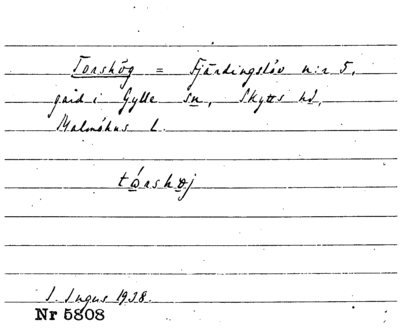 Torshög = Fjärdingslöv n:r 5,
gård i Gylle sn, Skytts hd,
Malmöhus L.
tårshøj
I. Ingus 1938.
Nr 5808